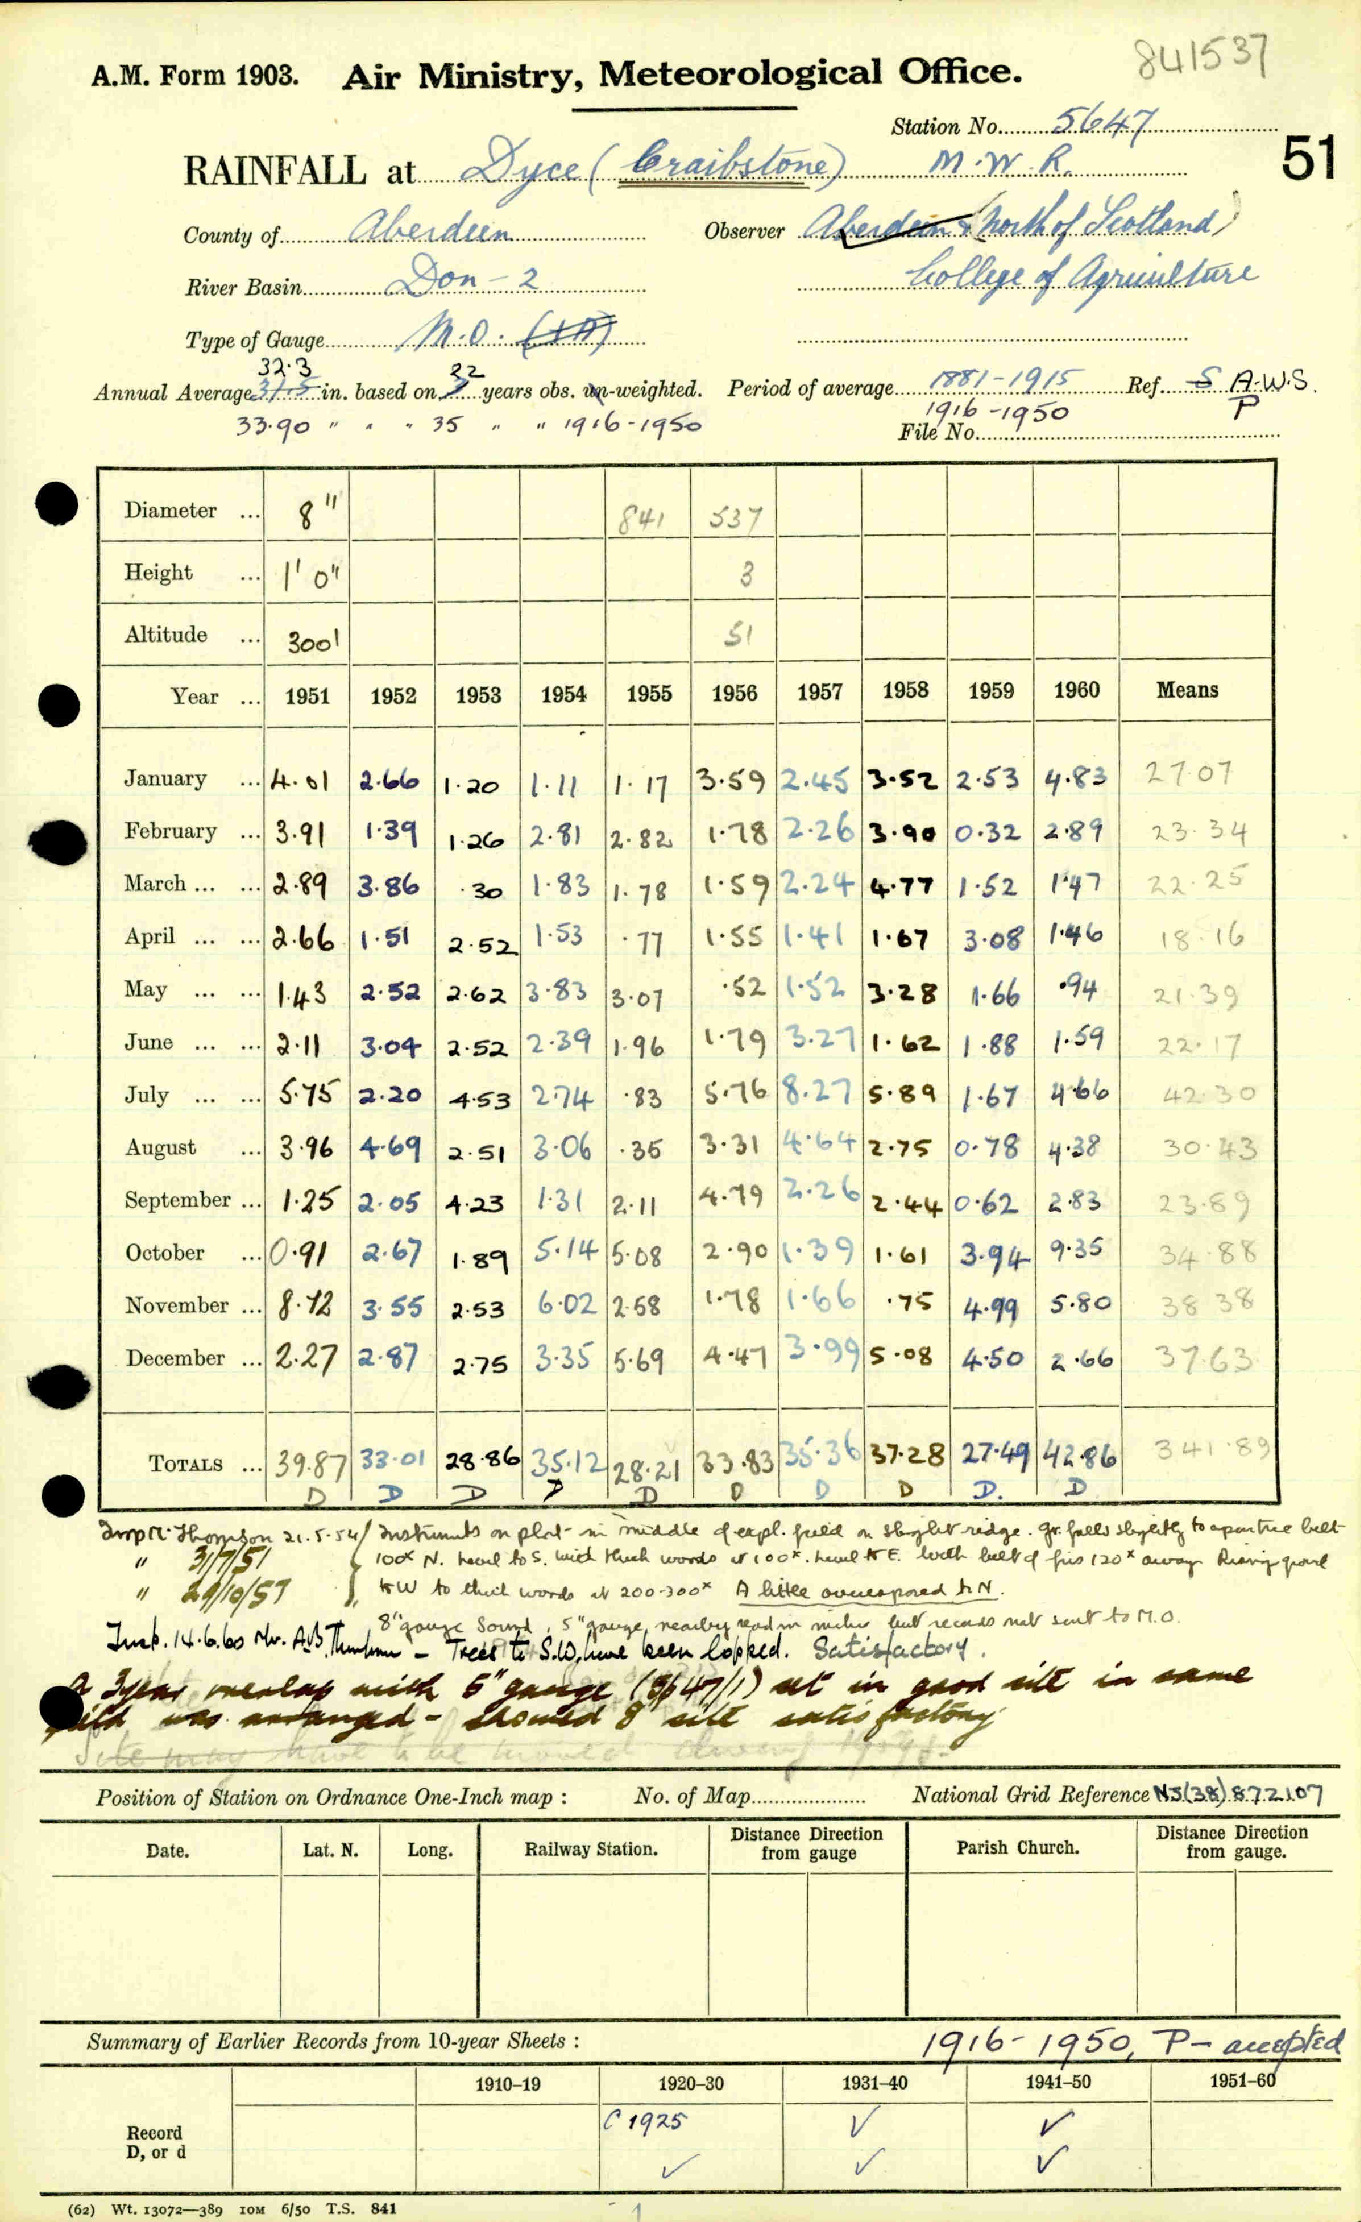 841537
A.M. Form 1903. Air Ministry, Meteorological Office.
Station No. 5647
51
RAINFALL at Dyce (Craibstone) M.W.R.
County of Aberdeen Observer Aberdeen & (North of Scotland)
River Basin Don - 2 College of Agriculture
Type of Gauge M.O. (1A)
32.3 22
Annual Average 31.5 in. based on years obs. un-weighted. Period of average 1881-1915 Ref. S A.W.S.
33.90 " " " 35 " " 1916-1950 1916-1950 P
File No.
Diameter ... 8" 841 537
Height ... 1' 0" 3
Altitude ... 300' 51
Year ... 1951 1952 1953 1954 1955 1956 1957 1958 1959 1960 Means
January ... 4.01 2.66 1.20 1.11 1.17 3.59 2.45 3.52 2.53 4.83 27.07
February ... 3.91 1.39 1.26 2.81 2.82 1.78 2.26 3.90 0.32 2.89 23.34
March ... ... 2.89 3.86 .30 1.83 1.78 1.59 2.24 4.77 1.52 1.47 22.25
April ... ... 2.66 1.51 2.52 1.53 .77 1.55 1.41 1.67 3.08 1.46 18.16
May ... ... 1.43 2.52 2.62 3.83 3.07 .52 1.52 3.28 1.66 .94 21.39
June ... ... 2.11 3.04 2.52 2.39 1.96 1.79 3.27 1.62 1.88 1.59 22.17
July ... ... 5.75 2.20 4.53 2.74 .83 5.76 8.27 5.89 1.67 4.66 42.30
August ... 3.96 4.69 2.51 3.06 .35 3.31 4.64 2.75 0.78 4.38 30.43
September ... 1.25 2.05 4.23 1.31 2.11 4.79 2.26 2.44 0.62 2.83 23.89
October ... 0.91 2.67 1.89 5.14 5.08 2.90 1.39 1.61 3.94 9.35 34.88
November ... 8.72 3.55 2.53 6.02 2.58 1.78 1.66 .75 4.99 5.80 38.38
December ... 2.27 2.87 2.75 3.35 5.69 4.47 3.99 5.08 4.50 2.66 37.63
TOTALS ... 39.87 33.01 28.86 35.12 28.21 33.83 35.36 37.28 27.49 42.86 341.89
D D D D D D D D D. D
Insp Mr Thomson 21.5.54 Instruments on plot in middle of expl. field on slight ridge. Gr. falls slightly to a belt
" 31/7/51 100x N. level to S. with thick woods at 100x. level to E. with belt of firs 120x away Rising ground
" 29/10/57 to W to thick woods at 200-300x A little overexposed to N.
8" gauge sound, 5" gauge, nearby read in but records not sent to M.O.
Insp. 14.6.60 Mr. A.B. Thomson - Trees to S.W. have been lopped. Satisfactory.
A 3 year overlap with 5" gauge (5647/1) set in good site in same
field was arranged - showed 8" site satisfactory
Site may have to be moved during
Position of Station on Ordnance One-Inch map : No. of Map National Grid Reference NJ(38) 872107
Date. Lat. N. Long. Railway Station. Distance Direction from gauge Parish Church. Distance Direction from gauge.
Summary of Earlier Records from 10-year Sheets : 1916-1950, P - accepted
1910–19 1920–30 1931–40 1941–50 1951–60
Record C 1925 ✓ ✓
D, or d ✓ ✓ ✓
(62) Wt. 13072—389 10M 6/50 T.S. 841
1